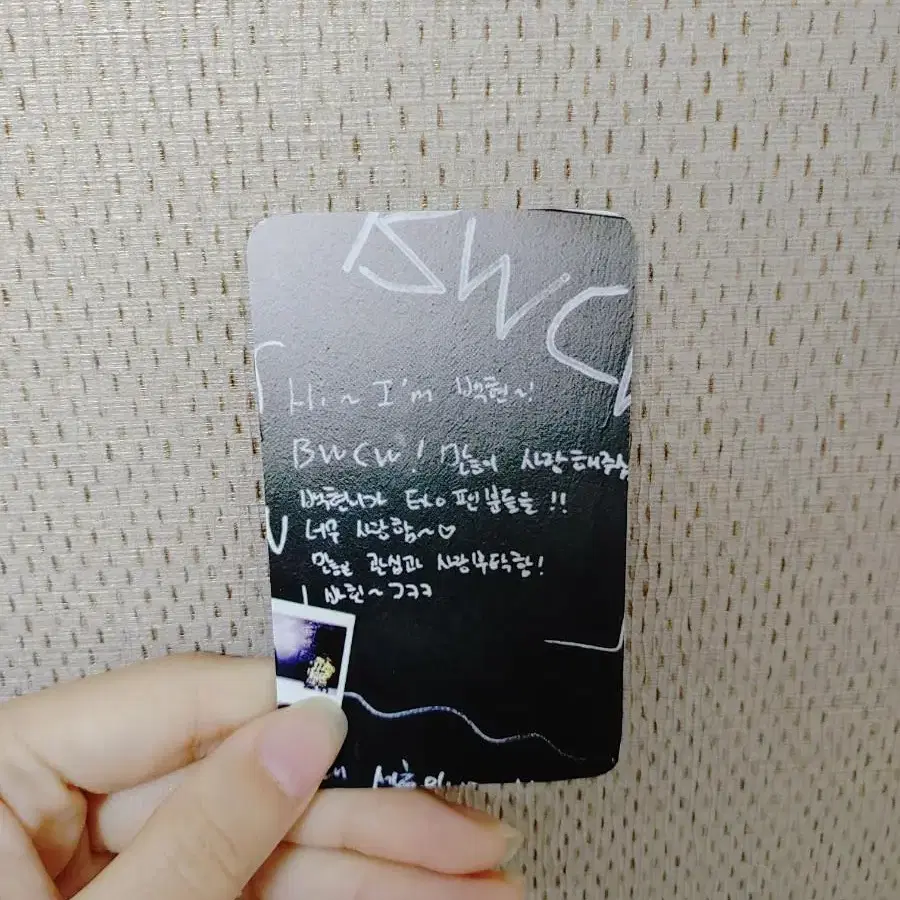 BWC
Hi~ I'm 백현~!
BWCW! 많이 사랑해주
백현이가 팬분들을!!
너무 사랑함~♡
많은 관심과 사랑부탁함!
사린~ㄱㅋㅋ